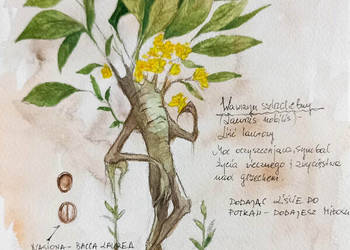 Wawrzyn szlachetny
(Laurus nobilis) -
Liść laurowy
Moc oczyszczająca, symbol
życia wiecznego i zwycięstwa
nad grzechem.
DODAJĄC LIŚCIE DO
POTRAW - DODAJESZ MIŁOŚĆ
NASIONA - BACCA LAUREA